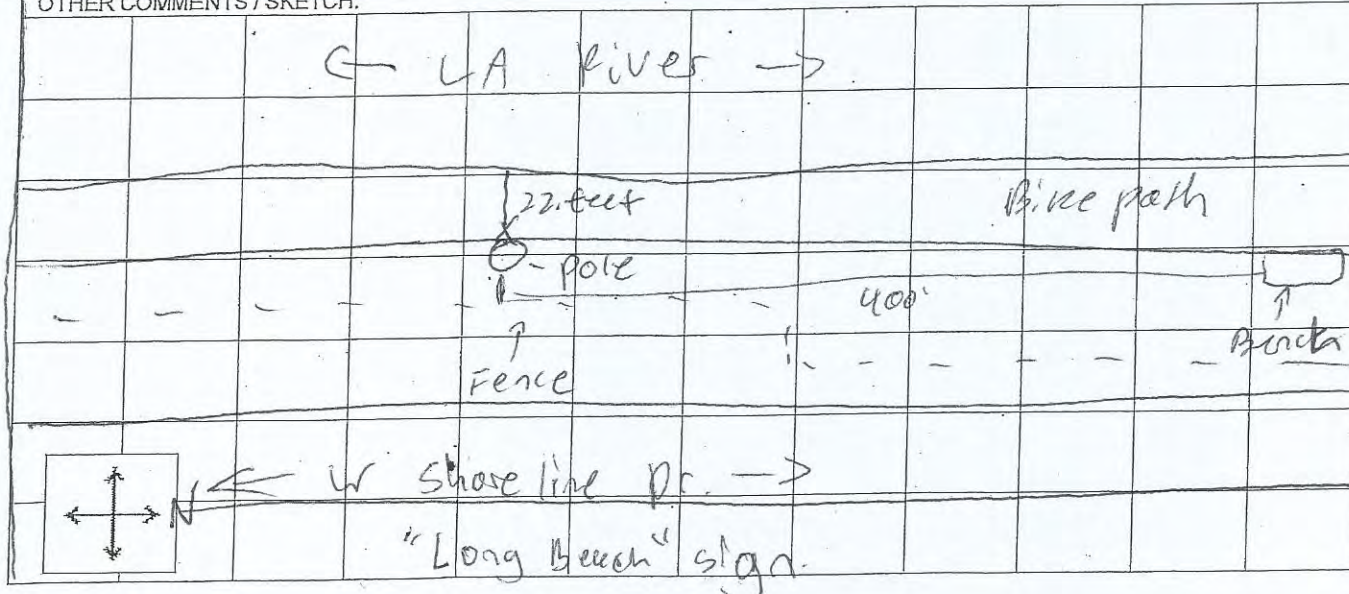 OTHER COMMENTS / SKETCH:
← LA River →
22 feet
Bike path
- pole
400'
Fence
Bench
N
← W Shoreline Dr. →
"Long Beach" sign.